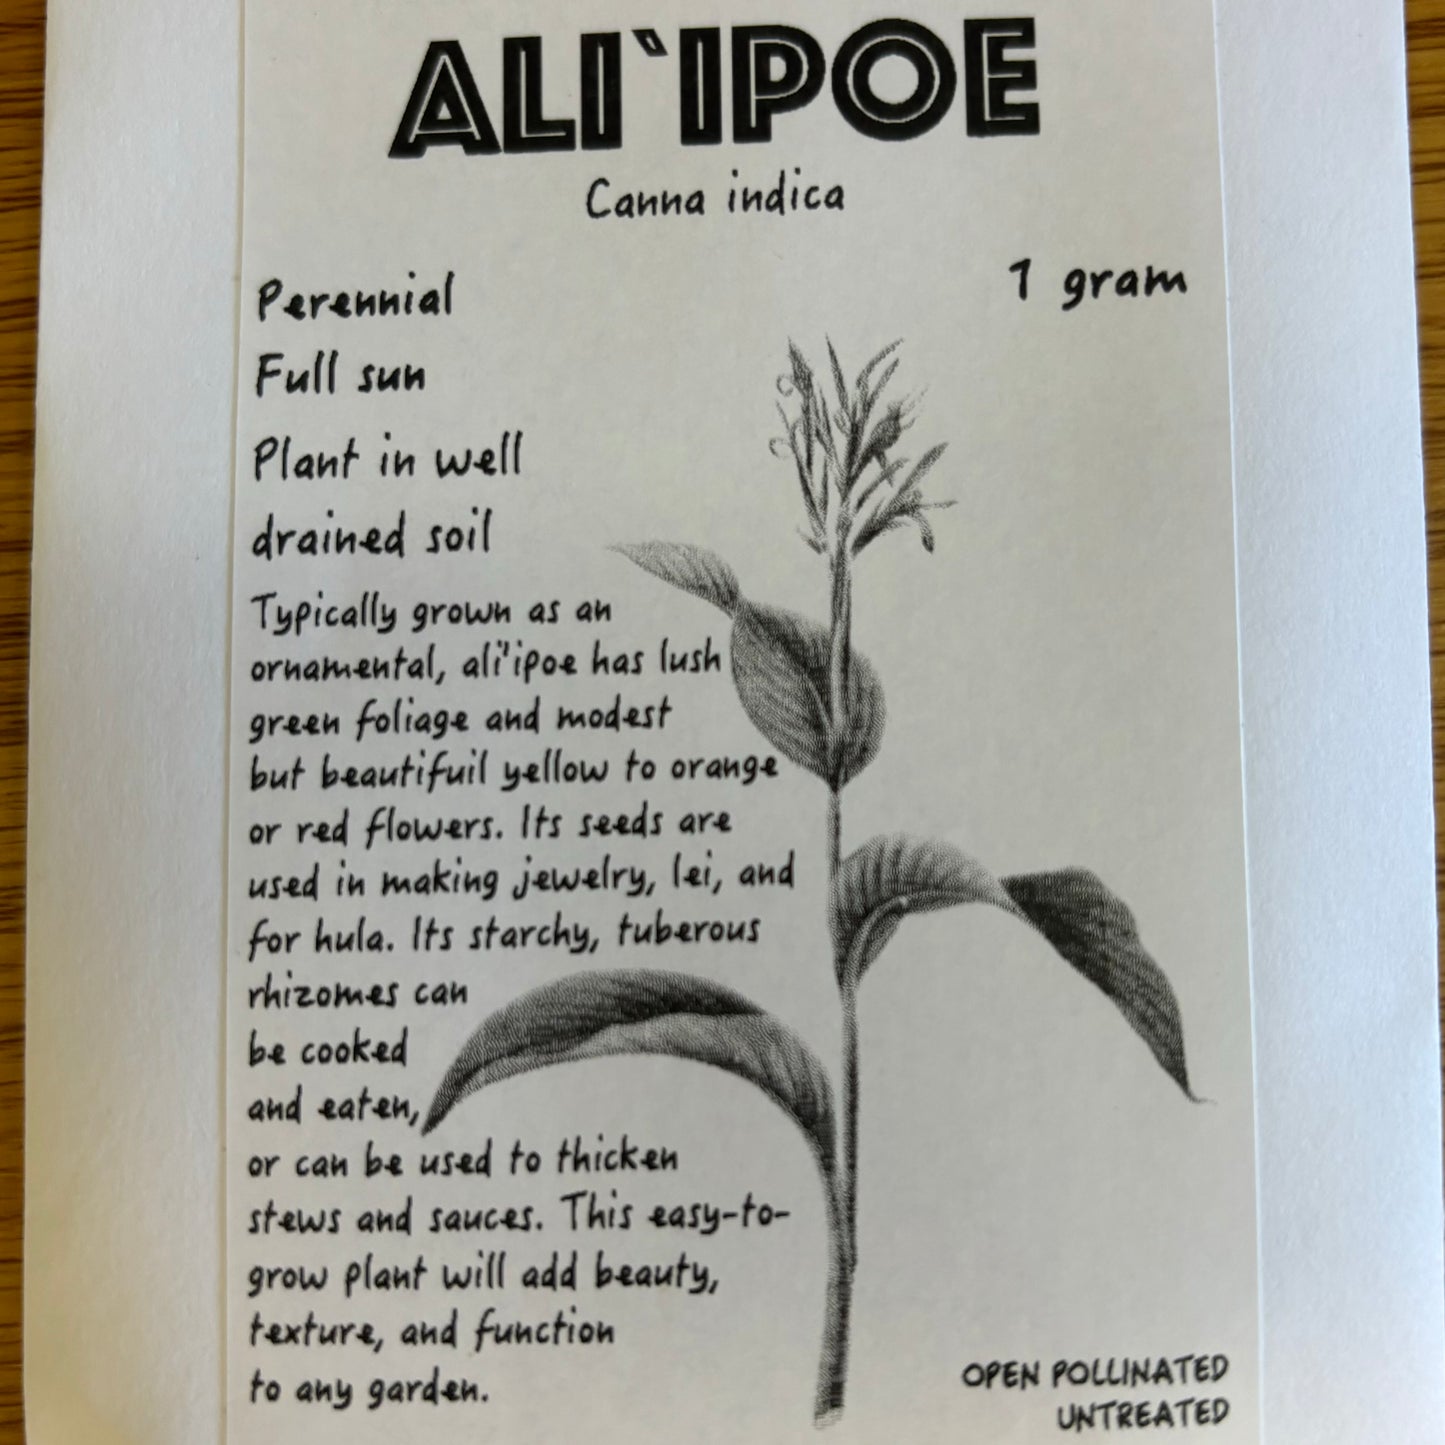 ALI`IPOE
Canna indica
Perennial
1 gram
Full sun
Plant in well
drained soil
Typically grown as an
ornamental, ali'ipoe has lush
green foliage and modest
but beautifuil yellow to orange
or red flowers. Its seeds are
used in making jewelry, lei, and
for hula. Its starchy, tuberous
rhizomes can
be cooked
and eaten,
or can be used to thicken
stews and sauces. This easy-to-
grow plant will add beauty,
texture, and function
to any garden.
OPEN POLLINATED
UNTREATED